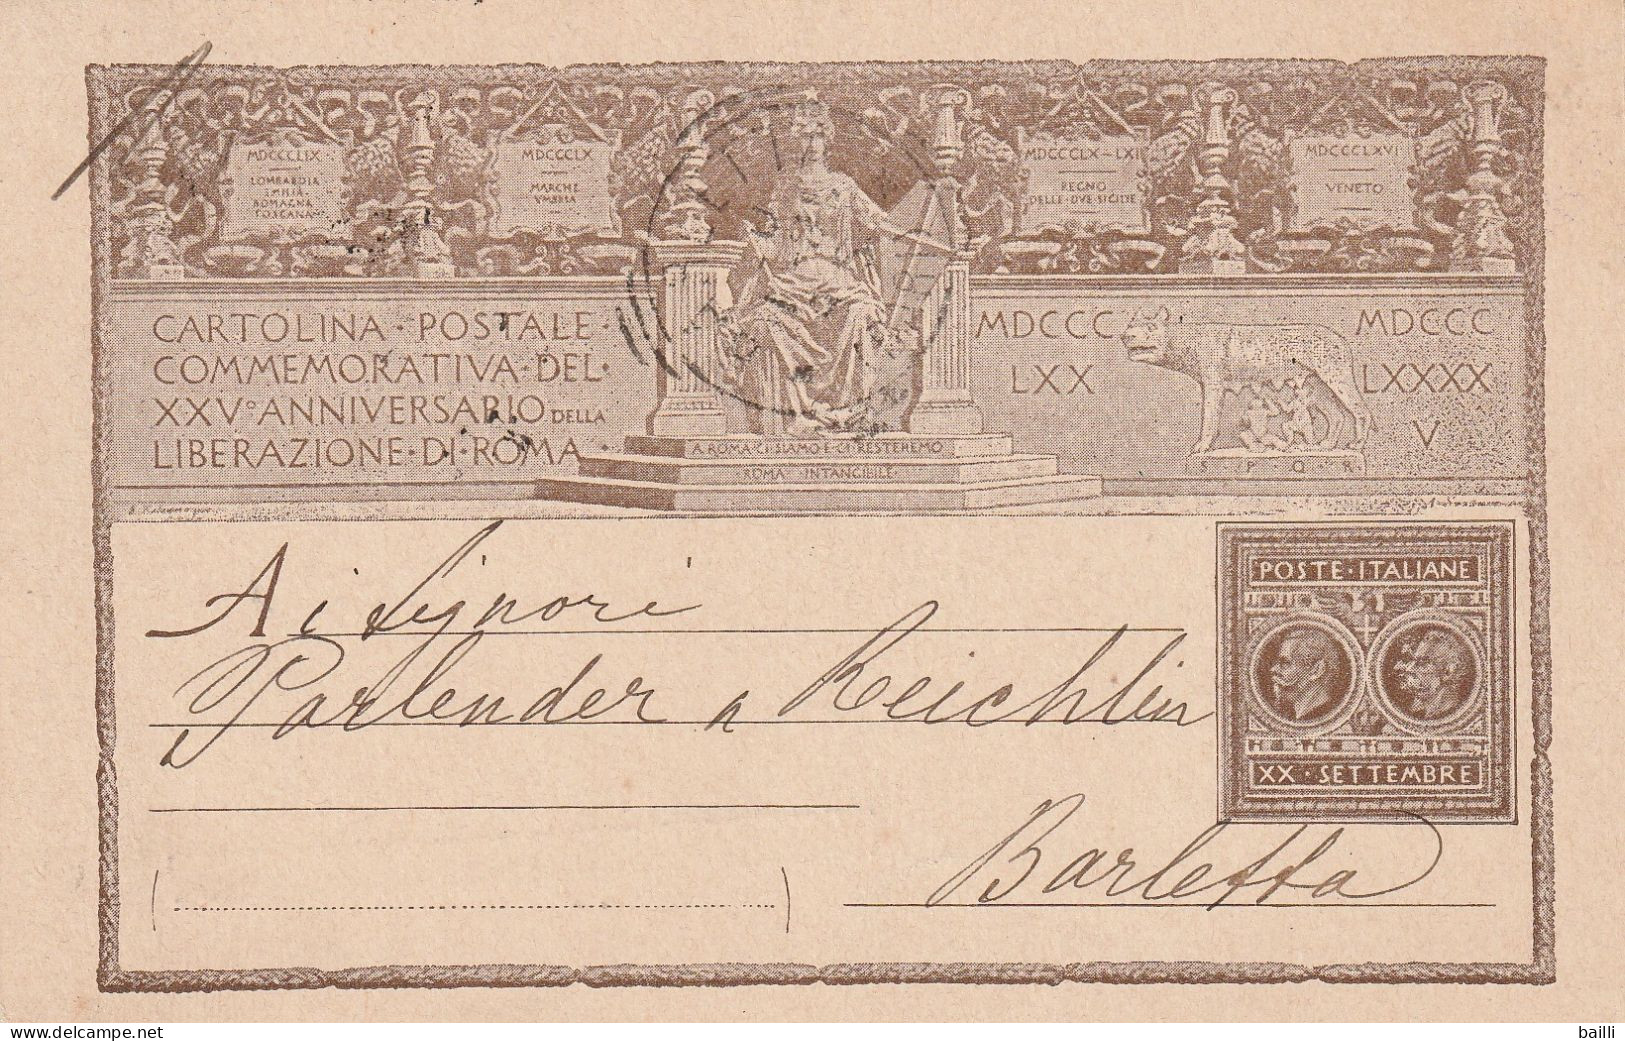 MDCCCLIX
LOMBARDIA
EMILIA
ROMAGNA
TOSCANA
MDCCCLX
MARCHE
VMBRIA
MDCCCLX-LXI
REGNO
DELLE·DVE SICILIE
MDCCCLXVI
VENETO
CARTOLINA·POSTALE·
COMMEMORATIVA·DEL·
XXVº ANNIVERSARIO DELLA
LIBERAZIONE·DI·ROMA
A ROMA CI SIAMO E CI RESTEREMO
ROMA INTANGIBILE
MDCCC
LXX
MDCCC
LXXXX
V
S P Q R
POSTE·ITALIANE
XX·SETTEMBRE
Ai Signori
Parlender a Reichlin
Barletta
delcampe.net
bailli